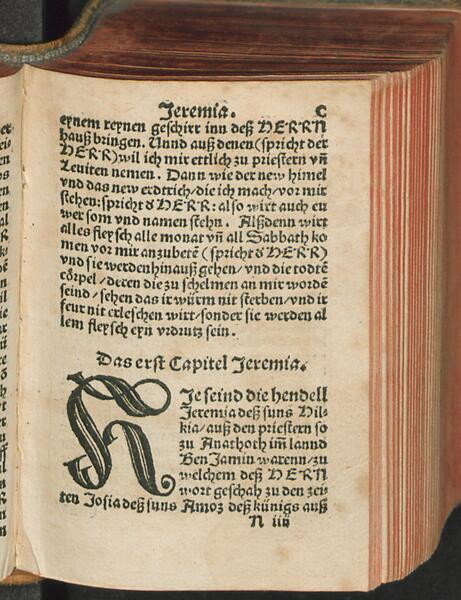 Jeremia. C
eynem reynen geschirr inn deß HERRN
hauß bringen. Unnd auß denen (spricht der
HERR) wil ich mir ettlich zu priestern vñ
Leuiten nemen. Dann wie der new himel
vnd das new erdtrich/die ich mach/vor mir
stehen: spricht d̕ HERR: also wirt auch eu
wer som vnd namen stehn. Alßdenn wirt
alles fleysch alle monat vñ all Sabbath ko
men vor mir anzubetē (spricht d̕ HERR)
vnd sie werden hinauß gehen/vnd die todtē
cörpel/deren die zu schelmen an mir wordē
seind/sehen das ir würm nit sterben/vnd ir
feur nit erleschen wirt/sonder sie werden al
lem fleysch eyn vrdrutz sein.
Das erst Capitel Jeremia.
HJe seind die hendell
Jeremia deß suns Hil-
kia/auß den priestern so
zu Anathoth im̄ lannd
BenJamin warenn/zu
welchem deß HERN
wort geschah zu den zei-
ten Josia deß suns Amoz deß künigs auß
N iiij